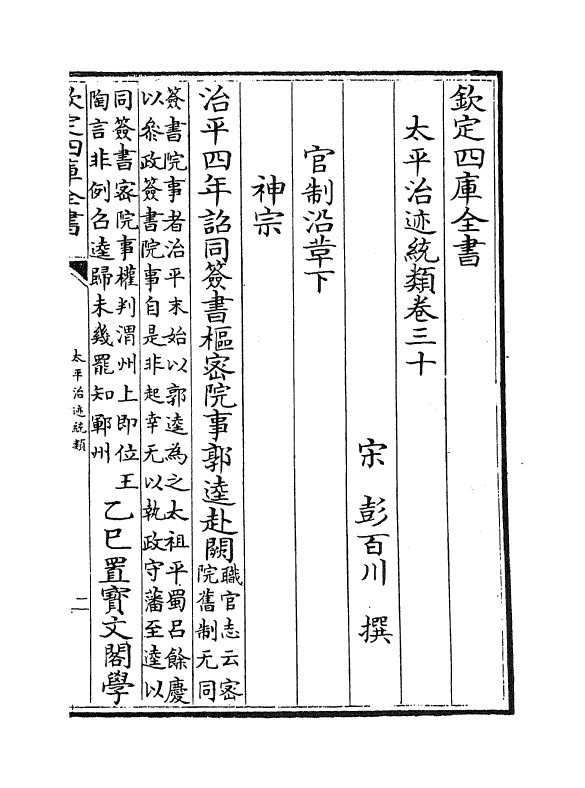 欽定四庫全書
太平治迹統類卷三十
宋 彭百川 撰
官制沿革下
神宗
治平四年詔同簽書樞密院事郭逵赴闕職官志云密
院舊制无同
簽書院事者治平末始以郭逵為之太祖平蜀吕餘慶
以叅政簽書院事自是非起幸无以執政守藩至逵以
同簽書密院事權判渭州上即位王
陶言非例召逵歸未幾罷知鄆州
乙巳置寳文閣學
欽定四庫全書
太平治迹統類
二